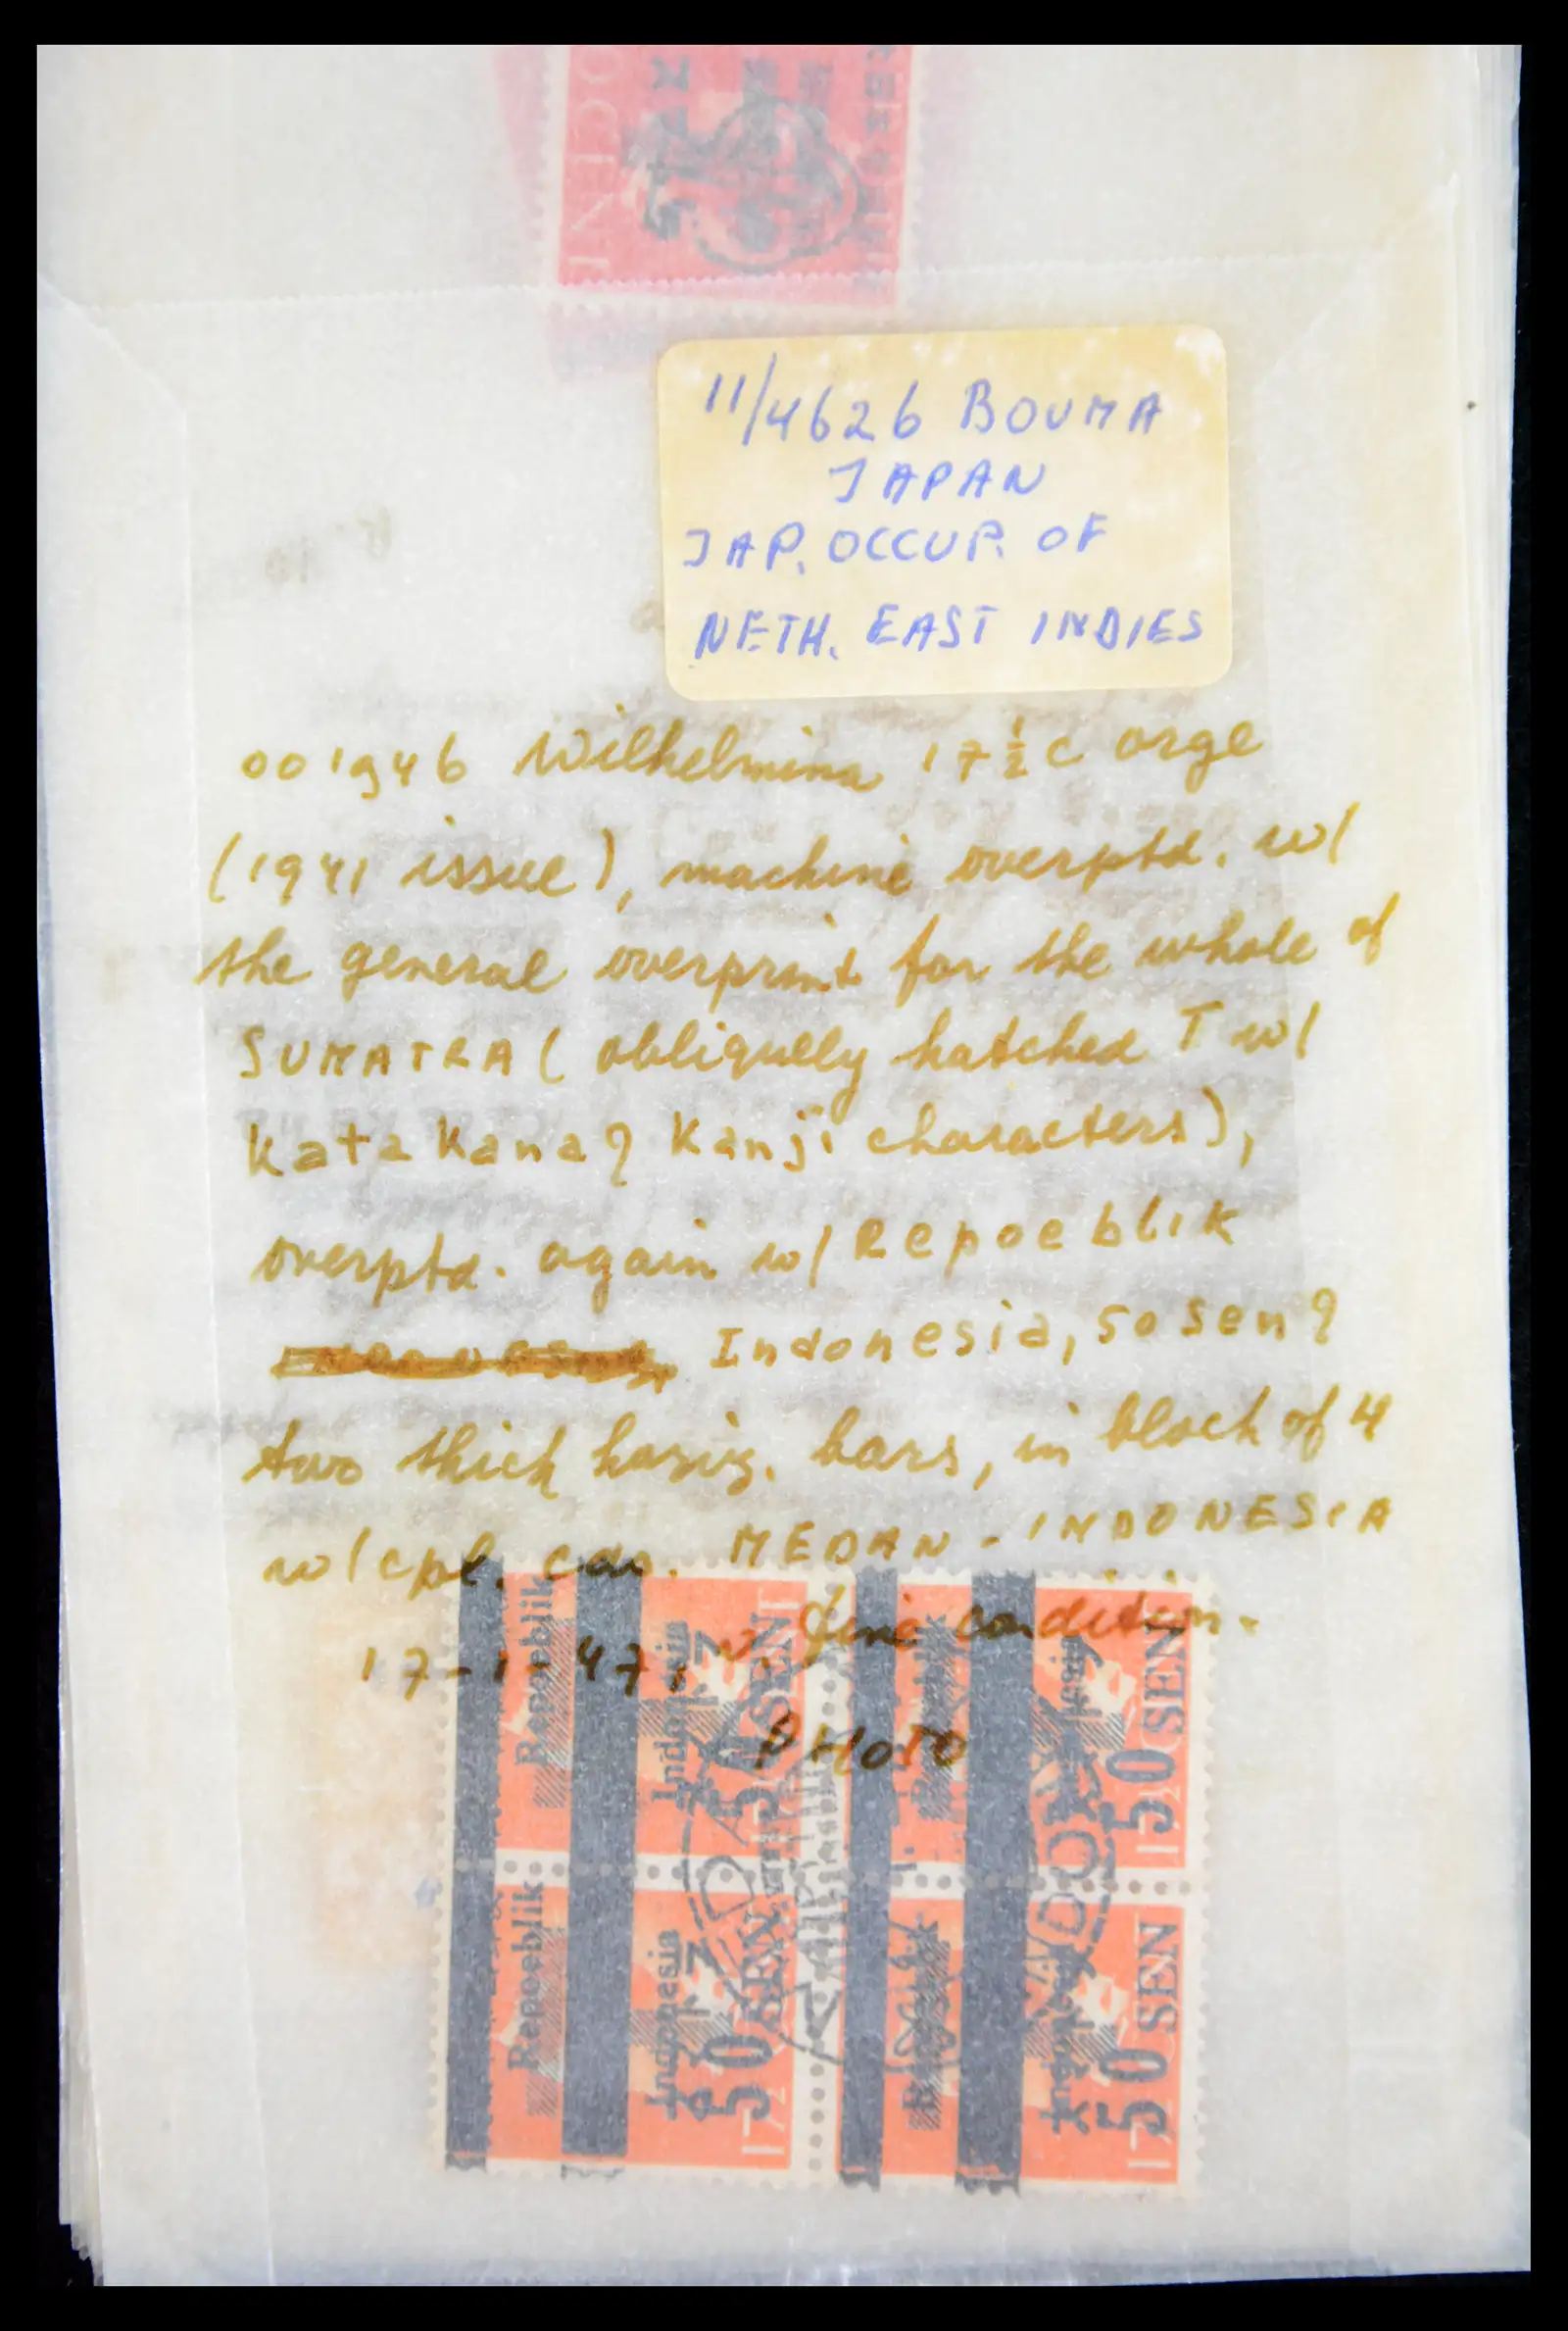 11/4626 BOUMA
JAPAN
JAP. OCCUP. OF
NETH. EAST INDIES
001946 Wilhelmina 17½c orge
(1941 issue), machine overptd. w/
the general overprint for the whole of
SUMATRA (obliquely hatched T w/
Katakana? Kanji characters),
overptd. again w/ Repoeblik
Indonesia, 50 sen?
two thick horiz. bars, in block of 4
w/ cpl. cds. MEDAN - INDONESIA
17-1-47, v. fine condition.
PHOTO
Repoeblik
Indonesia
50 SEN
Repoeblik
Indonesia
50 SEN
17½
50 SEN
17½
50 SEN
17½
INDO